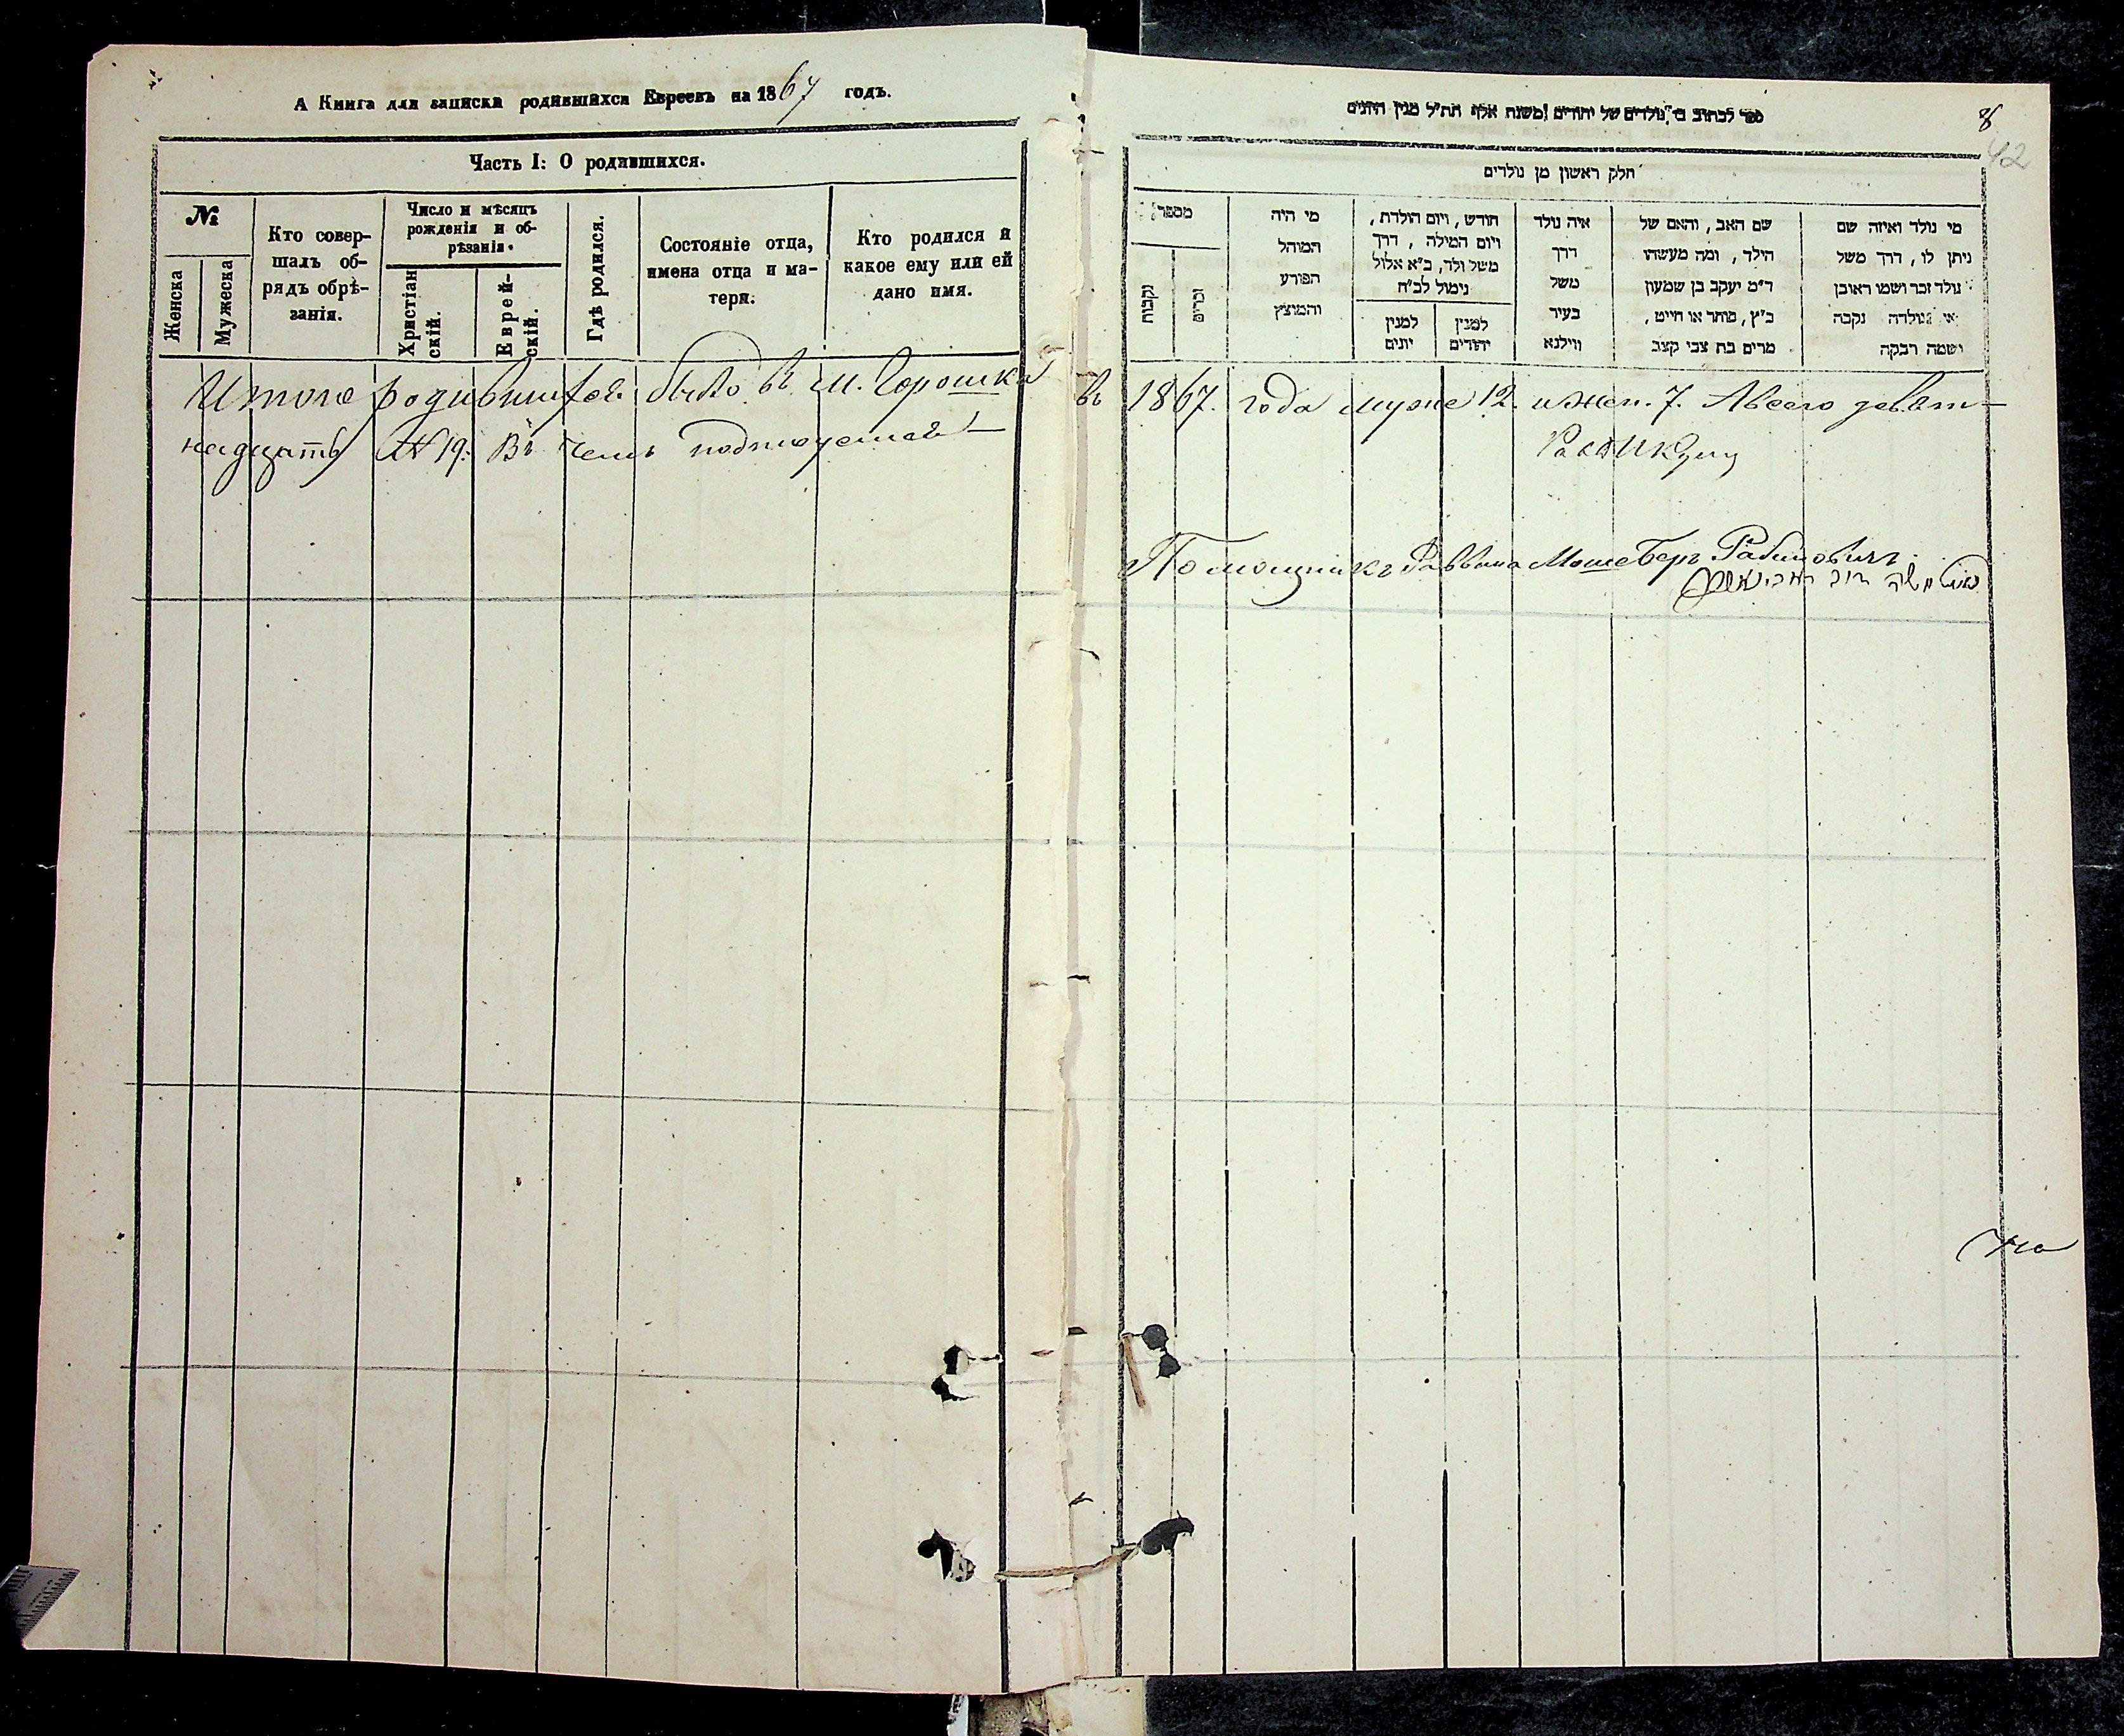 А Книга для записки родившихся Евреевъ на 1867 годъ.
Часть I: О родившихся.
№
Женска
Мужеска
Кто совер-
шалъ об-
рядъ обрѣ-
занія.
Число и мѣсяцъ
рожденія и об-
рѣзанія.
Христіан
скій.
Еврей-
скій.
Гдѣ родился.
Состояніе отца,
имена отца и ма-
тери.
Кто родился и
какое ему или ей
дано имя.
Итого родившихся было въ м. Горошки
надцать № 19. Въ чемъ подписуемся
8
42
חלק ראשון מן נולדים
מספר
נקבות
זכרים
מי היה
המוהל
הפורע
והמוצץ
חודש, ויום הולדת,
ויום המילה, דרך
משל ולד, כ״א אלול
נימול לכ״ח
למנין
יונים
למנין
יהודים
איה נולד
דרך
משל
בעיר
ווילנא
שם האב, והאם של
הילד, ומה מעשהו
ד״מ יעקב בן שמעון
כ״ץ, סוחר או חייט,
מרים בת צבי קצב
מי נולד ואיזה שם
ניתן לו, דרך משל
נולד זכר ושמו ראובן
או נולדה נקבה
ושמה רבקה
въ 1867. года муже 12. и жен. 7. А всего девят-
Помощникъ Раввина Мошебер Рабиновичъ